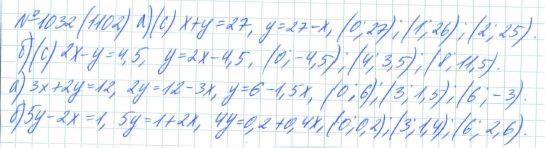 №1032 (1102) а)(с) x+y=27, y=27-x, (0; 27); (1; 26); (2; 25).
б)(с) 2x-y=4,5, y=2x-4,5, (0; -4,5); (4; 3,5); (8; 11,5).
а) 3x+2y=12, 2y=12-3x, y=6-1,5x, (0; 6); (3; 1,5); (6; -3).
б) 5y-2x=1, 5y=1+2x, 4y=0,2+0,4x, (0; 0,2); (3; 1,4); (6; 2,6).